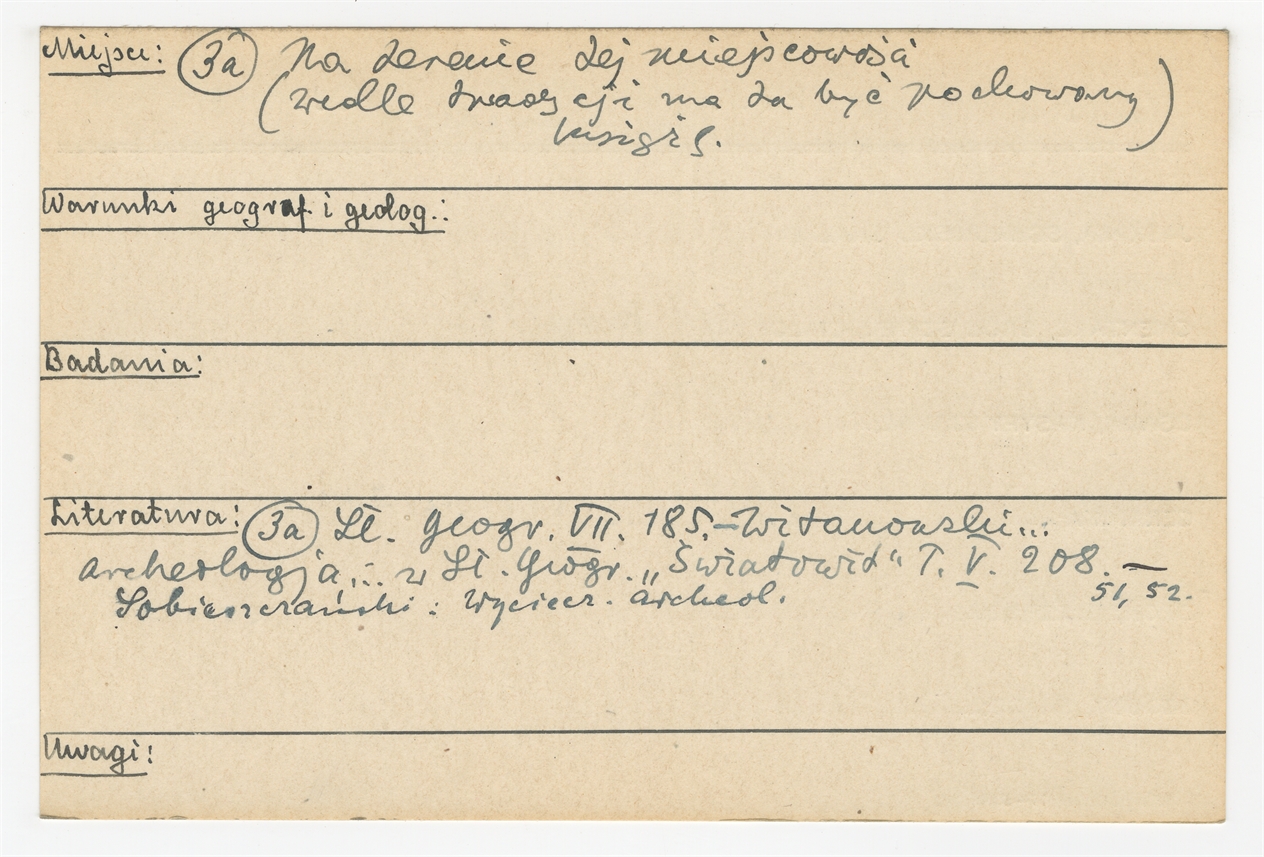 Miejsce: 3a Na terenie tej miejscowości
(wedle tradycji ma tu być pochowany)
książę.
Warunki geograf i geolog.:
Badania:
Literatura: 3a Sł. geogr. VII. 185.–Witanowski...
archeologja... w Sł. Geogr. „Światowit" T. V. 208. –
Sobieszczański: Wyciecz. archeol. 51, 52.
Uwagi: